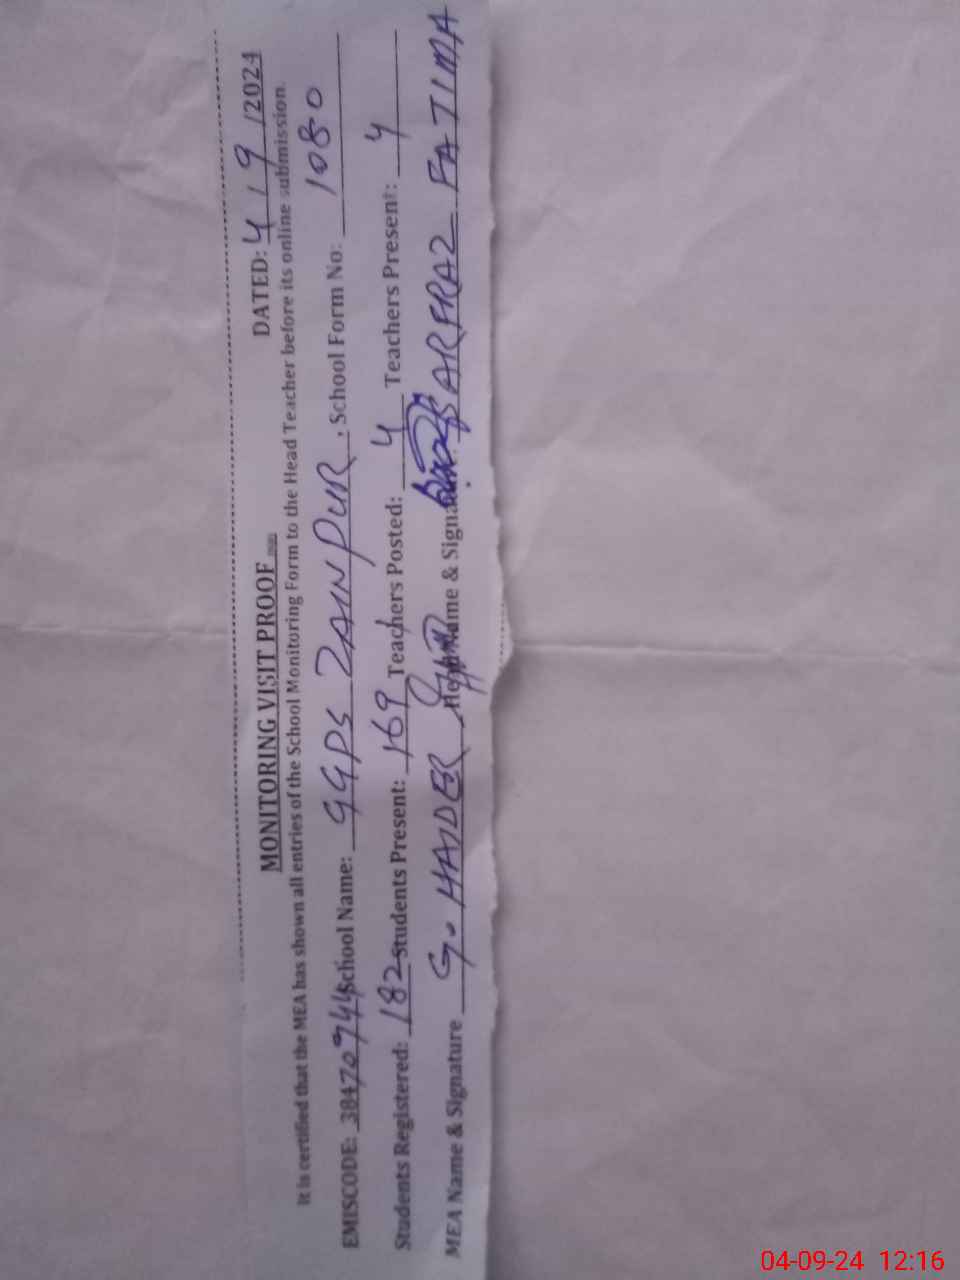 MONITORING VISIT PROOF DATED: 4/9/2024
It is certified that the MEA has shown all entries of the School Monitoring Form to the Head Teacher before its online submission.
EMISCODE: 38470944 School Name: GGPS ZAINPUR. School Form No: 1080
Students Registered: 182 Students Present: 169 Teachers Posted: 4 Teachers Present: 4
MEA Name & Signature G. HAIDER Head Name & Signature: SARFRAZ FATIMA
04-09-24 12:16